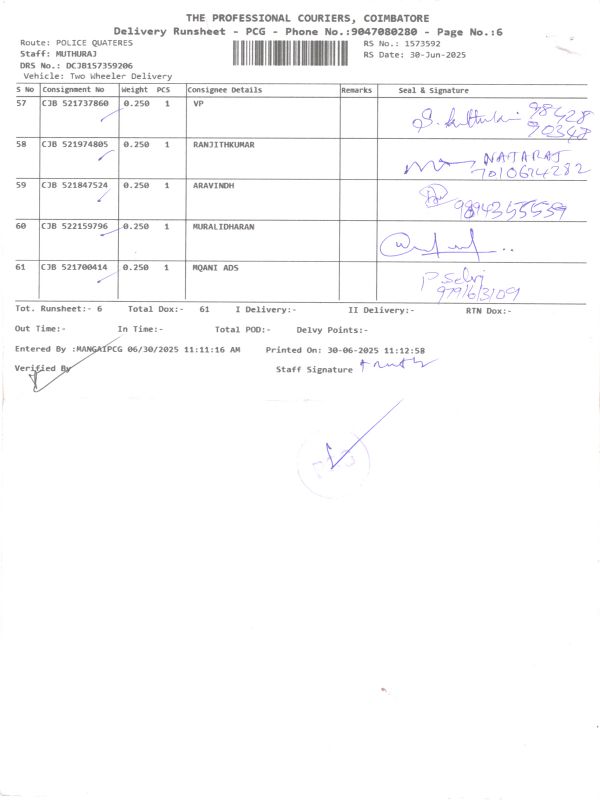 THE PROFESSIONAL COURIERS, COIMBATORE
Delivery Runsheet - PCG - Phone No.:9047080280 - Page No.:6
Route: POLICE QUATERES RS No.: 1573592
Staff: MUTHURAJ RS Date: 30-Jun-2025
DRS No.: DCJB157359206
Vehicle: Two Wheeler Delivery
S No Consignment No Weight PCS Consignee Details Remarks Seal & Signature
57 CJB 521737860 0.250 1 VP 98428
90348
58 CJB 521974805 0.250 1 RANJITHKUMAR NATARAJ
7010674282
59 CJB 521847524 0.250 1 ARAVINDH
9894355559
60 CJB 522159796 0.250 1 MURALIDHARAN
61 CJB 521700414 0.250 1 MQANI ADS P. Selvi
Tot. Runsheet:- 6 Total Dox:- 61 I Delivery:- II Delivery:- RTN Dox:-
Out Time:- In Time:- Total POD:- Delvy Points:-
Entered By :MANGAIPCG 06/30/2025 11:11:16 AM Printed On: 30-06-2025 11:12:58
Verified By Staff Signature